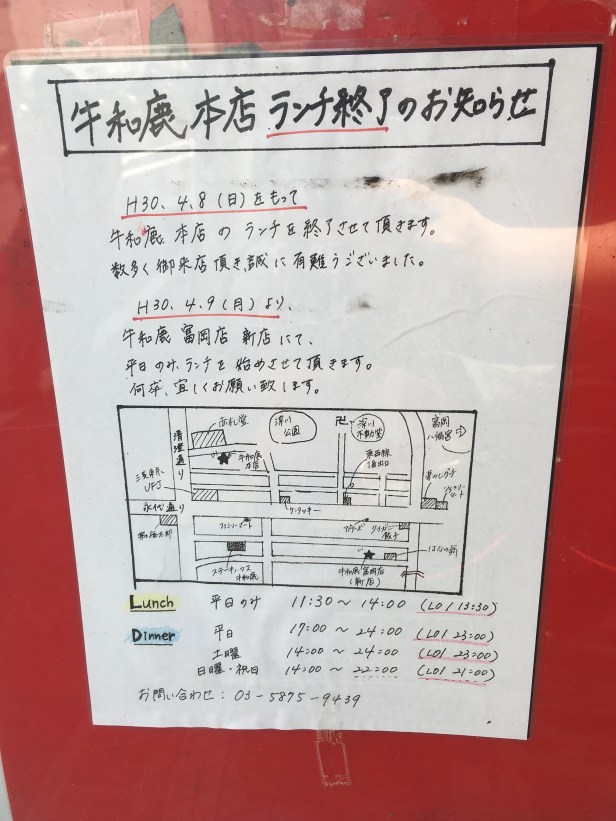 牛和鹿 本店 ランチ終了のお知らせ
H30. 4.8 (日) をもって
牛和鹿 本店 の ランチを終了させて頂きます。
数多く御来店頂き、誠に有難うございました。
H30. 4.9 (月) より、
牛和鹿 富岡店 新店 にて、
平日のみ、ランチを始めさせて頂きます。
何卒、宜しくお願い致します。
赤札堂
深川
公園
卍
深川
不動堂
富岡
八幡宮
清澄通り
牛和鹿
本店
三菱東京
UFJ
永代通り
ケンタッキー
ファミリーマート
ステーキハウス
牛和鹿
牛和鹿富岡店
(新店)
はなの舞
Lunch 平日のみ 11:30 ～ 14:00 (LO/ 13:30)
Dinner 平日 17:00 ～ 24:00 (LO/ 23:00)
土曜 14:00 ～ 24:00 (LO/ 23:00)
日曜・祝日 14:00 ～ 22:00 (LO/ 21:00)
お問い合わせ : 03-5875-9439